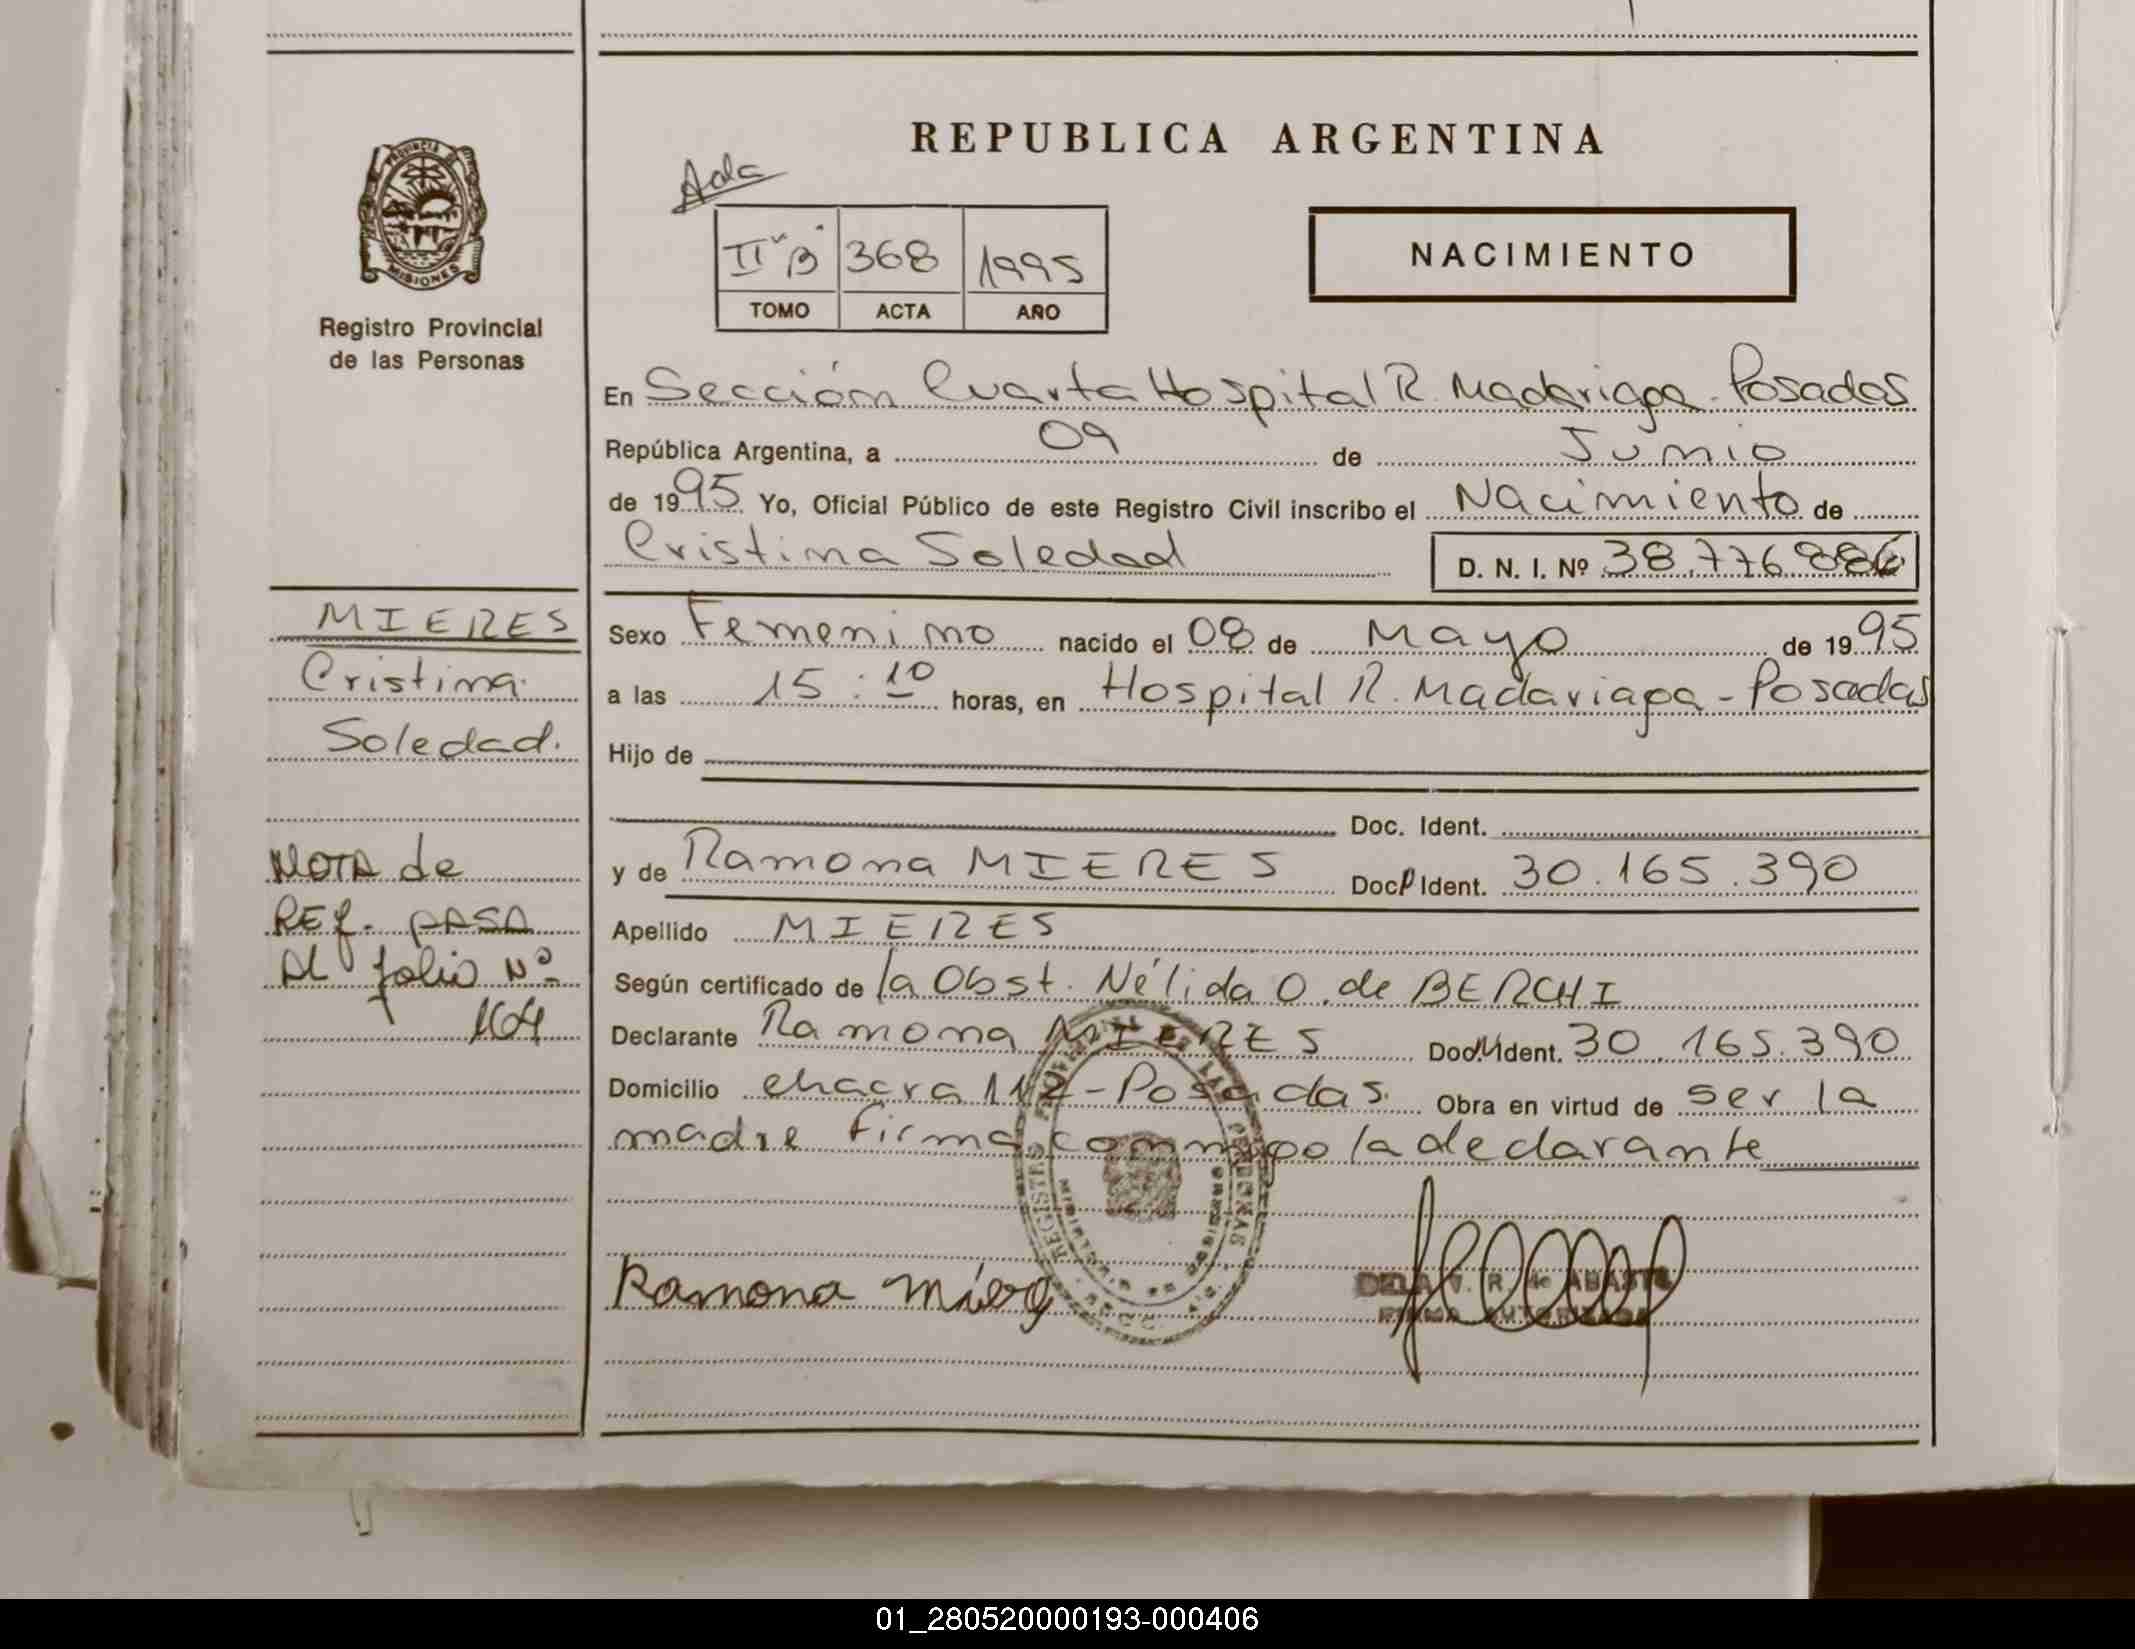 REPUBLICA ARGENTINA
PROVINCIA DE
MISIONES
Registro Provincial
de las Personas
Ada
II "B" 368 1995
TOMO ACTA AÑO
NACIMIENTO
En Sección Cuarta Hospital R. Madariaga - Posadas
República Argentina, a 09 de Junio
de 1995 Yo, Oficial Público de este Registro Civil inscribo el Nacimiento de
Cristina Soledad D. N. I. Nº 38.776.886
MIERES
Cristina
Soledad.
NOTA de
REF. PASA
Al folio Nº
164
Sexo Femenino nacido el 08 de Mayo de 1995
a las 15:10 horas, en Hospital R. Madariaga - Posadas
Hijo de
Doc. Ident.
y de Ramona MIERES Doc. Ident. 30.165.390
Apellido MIERES
Según certificado de la Obst. Nélida O. de BERCHI
Declarante Ramona MIERES Doc. Ident. 30.165.390
Domicilio chacra 112 - Posadas. Obra en virtud de ser la
madre firma conmigo la declarante
Ramona
FIRMA AUTORIZADA
01_280520000193-000406